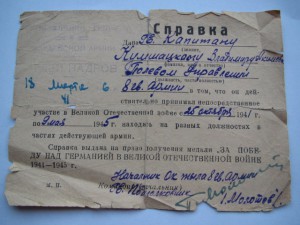 Справка
Дана Гв. Капитану
18 марта 6
8 гв. Армии в том, что он дей-
ствительно принимал непосредственное
участие в Великой Отечественной войне с 26 октября 1941 г.
по 9 мая 1945 г. находясь на разных должностях в
частях действующей армии.
Справка выдана на право получения медали „ЗА ПОБЕ-
ДУ НАД ГЕРМАНИЕЙ В ВЕЛИКОЙ ОТЕЧЕСТВЕННОЙ ВОЙНЕ
1941—1945 г.г.
Начальник Ок тыла 8 гв. Армии
м. п.
Подполковник
/Молотов/